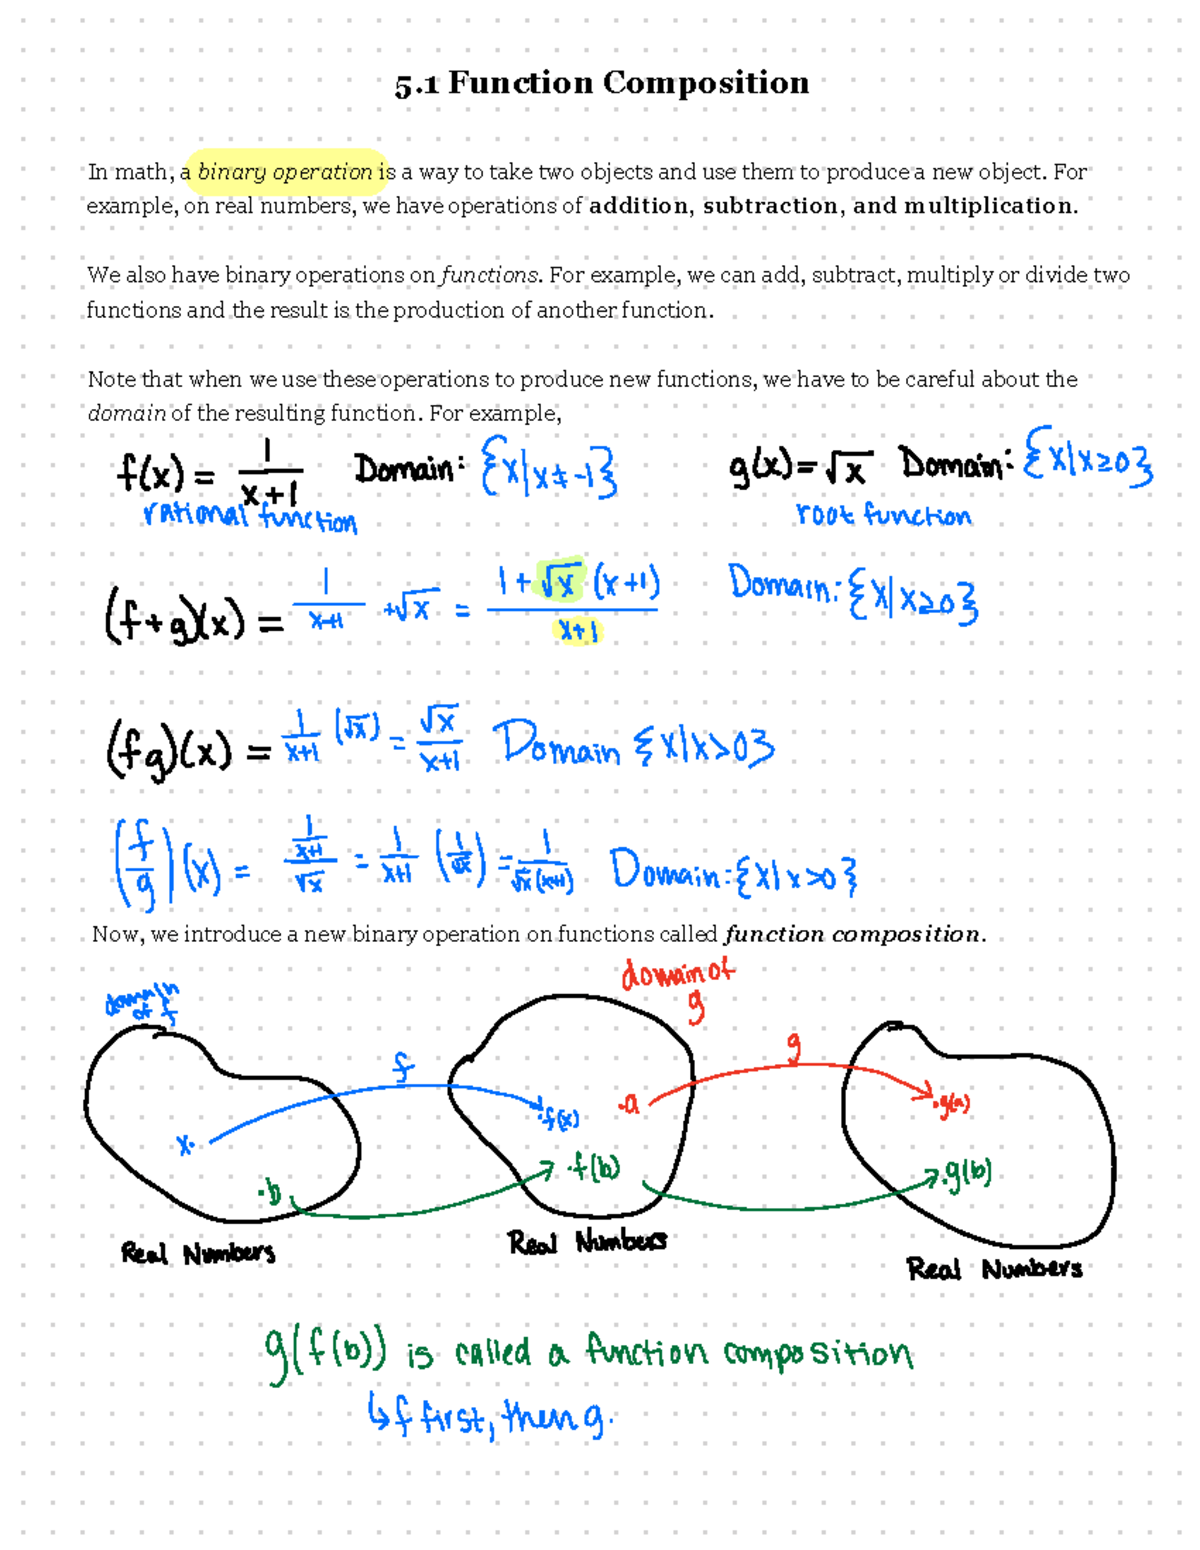 5.1 Function Composition
In math, a binary operation is a way to take two objects and use them to produce a new object. For
example, on real numbers, we have operations of addition, subtraction, and multiplication.
We also have binary operations on functions. For example, we can add, subtract, multiply or divide two
functions and the result is the production of another function.
Note that when we use these operations to produce new functions, we have to be careful about the
domain of the resulting function. For example,
f(x) = 1/(x+1) Domain: {x|x≠-1} g(x)=√x Domain: {x|x≥0}
rational function root function
(f+g)(x) = 1/(x+1) +√x = (1+√x (x+1))/(x+1) Domain: {x|x≥0}
(fg)(x) = 1/(x+1) (√x) = √x/(x+1) Domain {x|x>0}
(f/g)(x) = (1/(x+1))/√x = 1/(x+1) (1/√x) = 1/(√x(x+1)) Domain: {x|x>0}
Now, we introduce a new binary operation on functions called function composition.
domain of
g
domain
of f
f
g
.f(x)
.a
.g(a)
x.
.b
.f(b)
.g(b)
Real Numbers
Real Numbers
Real Numbers
g(f(b)) is called a function composition
↳f first, then g.